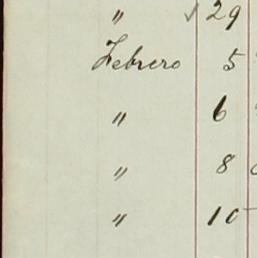 " √ 29
Febrero 5
" 6
" 8
" 10